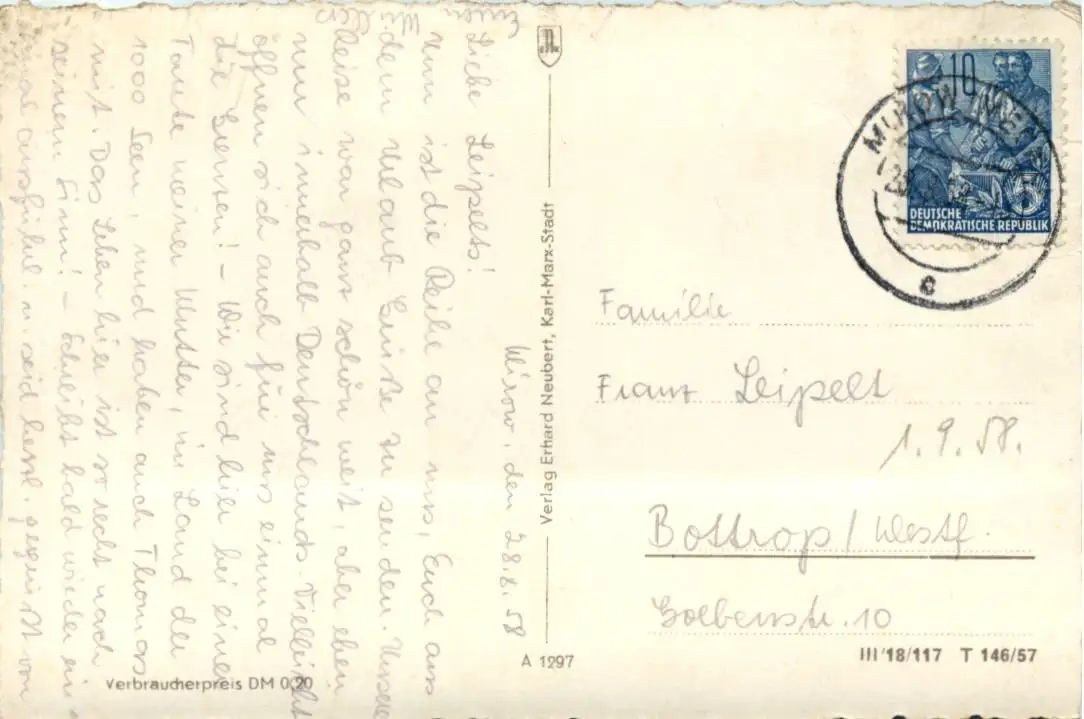 Mirow, den 28.8.58
Liebe Leipelts!
Nun ist die Reihe an uns, Euch aus
dem Urlaub Grüße zu senden. Unsere
Reise war ganz schön weit, aber eben
nur innerhalb Deutschlands. Vielleicht
öffnen sich auch für uns einmal
die Grenzen! – Wir sind hier bei einer
Tante meiner Mutter, im Land der
1000 Seen, und haben auch Thomas
mit. Das Leben hier ist so recht nach
seinem Sinn! – Schreibt bald wieder ein
mal ausführl. u. seid herzl. gegrüßt von
Verbraucherpreis DM 0,20
Verlag Erhard Neubert, Karl-Marx-Stadt
A 1297
10
DEUTSCHE
DEMOKRATISCHE REPUBLIK
5
MIROW (MECKL
c
Familie
Franz Leipelt
1.9.58.
Bottrop/Westf.
10
III/18/117 T 146/57